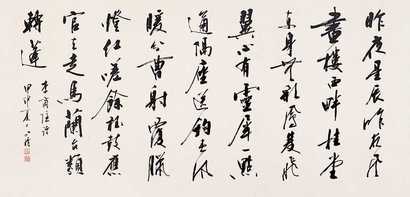 昨夜星辰昨夜風
畫樓西畔桂堂
東身無彩鳳雙飛
翼心有靈犀一點
通隔座送鉤春酒
暖分曹射覆臘
燈紅嗟餘聽鼓應
官去走馬蘭台類
轉蓬
李商隱詩
甲申夏